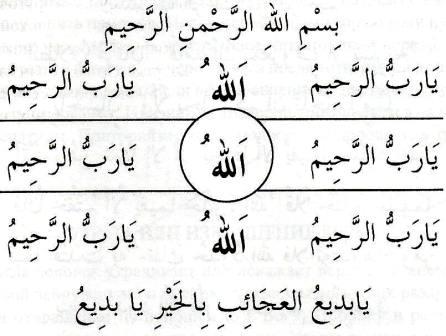 بِسْمِ اللهِ الرَّحْمنِ الرَّحيمِ
يَارَبُّ الرَّحِيمُ اَللهُ يَارَبُّ الرَّحِيمُ
يَارَبُّ الرَّحِيمُ اَللهُ يَارَبُّ الرَّحِيمُ
يَارَبُّ الرَّحِيمُ اَللهُ يَارَبُّ الرَّحِيمُ
يَابَدِيعُ العَجَائِبِ بِالخَيْرِ يَا بَدِيعُ